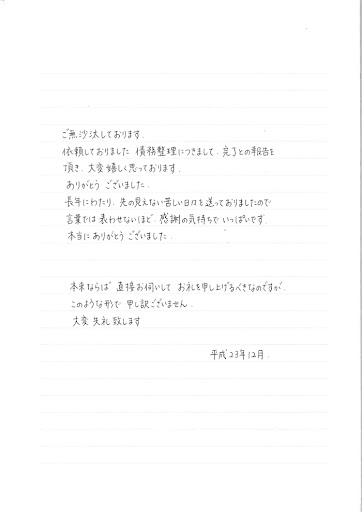 ご無沙汰しております.
依頼しておりました 債務整理につきまして、完了との報告を
頂き、大変嬉しく思っております.
ありがとう ございました.
長年にわたり、先の見えない苦しい日々を送っておりましたので
言葉では 表わせないほど、感謝の気持ちで いっぱいです.
本当に ありがとう ございました.
本来ならば 直接お伺いして お礼を申し上げるべきなのですが.
このような形で 申し訳ございません.
大変 失礼 致します
平成23年12月.